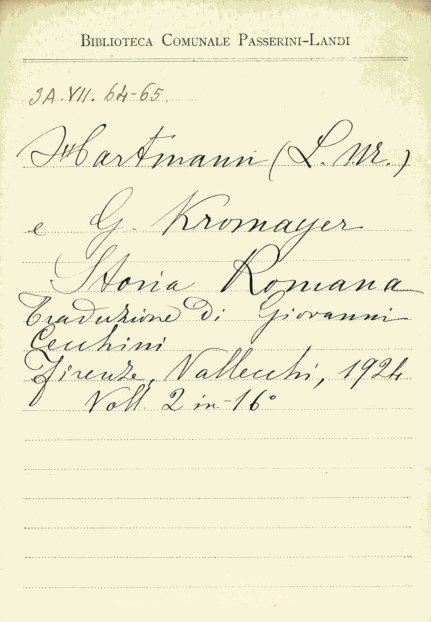 BIBLIOTECA COMUNALE PASSERINI-LANDI
3A.VII. 64-65.
Hartmann (L. M.)
e G. Kromayer
Storia Romana
Traduzione di Giovanni
Cecchini
Firenze, Vallecchi, 1924
Voll. 2 in-16°